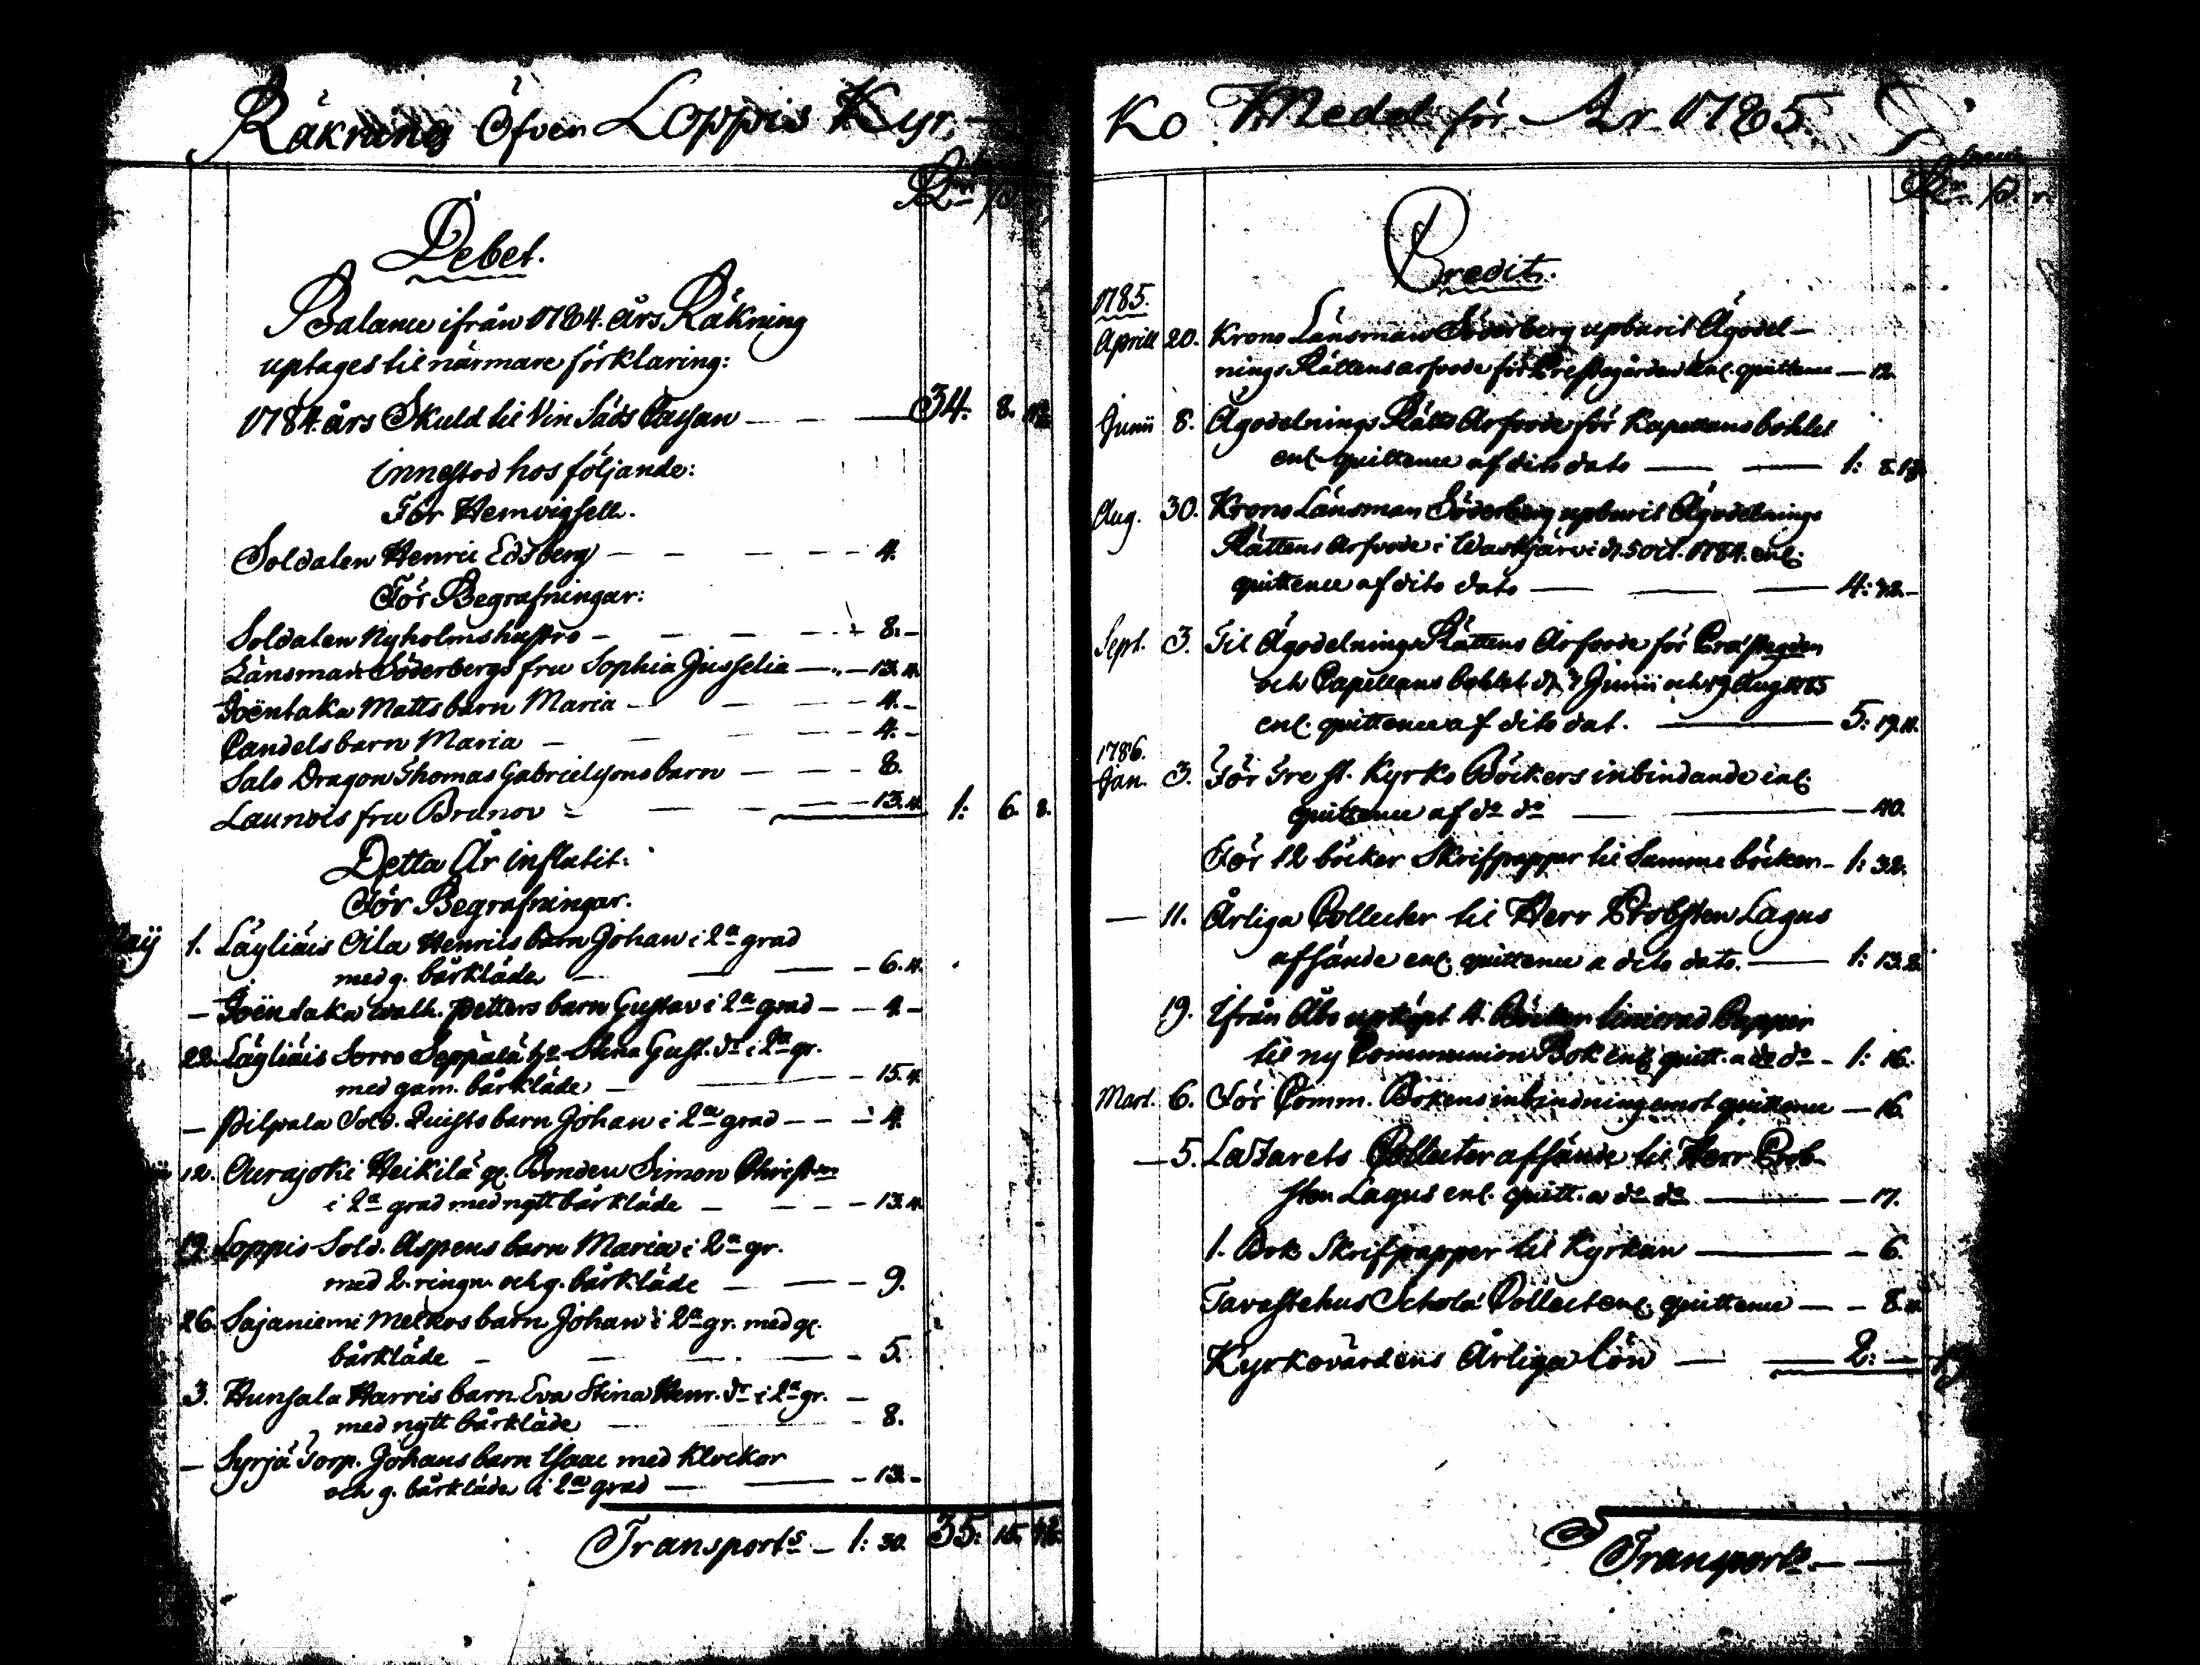 Räkning Öfver Loppis Kyr-
Debet.
Balance ifrån 1784. års Räkning
uptages til närmare förklaring:
1784. års Skuld til Vin Säds Cassan — — — 34. 8.
innestod hos följande:
För Hemvigsell.
Soldaten Henric Edsberg — — — — 4.
För Begrafningar:
Soldaten Nyholms hustro — — — — 8. –
Länsman Söderbergs fru Sophia Jusselia — 13. 4.
Joëntaka Matts barn Maria — — — 4. –
Pandels barn Maria — — — 4. –
Salo Dragon Thomas Gabrielssons barn — — 8.
Launois fru Brunov — — — 13. 4. 1: 6. 8.
Detta År influtit:
För Begrafningar.
1. Läyliäis Oila Henrics barn Johan i 2a grad
med g. bårkläde — — — 6. 4.
— Joëntaka Petters barn Gustav i 2a grad — — 4 –
22. Läyliäis Sorro Seppälä Stina Gust. dr i 2a gr.
med gam. bårkläde — — 15. 4.
— Pilpala Sold. Quists barn Johan i 2a grad — — 4.
12. Ourajoki Heikilä gl. Bonden Simon Christ
i 2a grad med nytt bårkläde — — — 13. 4.
19. Loppis Sold. Aspens barn Maria i 2a gr.
med 2. ringn. och g. bårkläde — — 9.
26. Sajaniemi Melkos barn Johan i 2a gr. med gl.
bårkläde — — — — 5.
3. Hunsala Harris barn Eva Stina Henr. dr i 2a gr. —
med nytt bårkläde — — 8.
— Syrjä Torp. Johans barn Isaac med klockor
och g. bårkläde i 2a grad — — 13. –
Transport — 1: 30. 35. 15.
Ko Medel för År 1785.
Credit.
1785.
Aprill 20. Krono Länsman Söderberg upburit Ägodel-
nings Rättens arfvode för Prestegården enl. quittence — 12.
Junii 8. Ägodelnings Rätts Arfvode för Kapellans bohlet
enl. quittence af dito dato — — 1: 8.
Aug. 30. Krono Länsman Söderberg upburit Ägodelnings
Rättens Arfvode i d. 5 Oct. 1784. enl.
quittence af dito dato — — — 4: 32. –
Sept. 3. Til Ägodelnings Rättens Arfvode för
och Capellans bohlet d. 7 Junii och 19 Aug. 1785
enl. quittence af dito dat. — 5: 19. 4.
1786.
Jan. 3. För Tre st. Kyrko Böckers inbindande enl.
quittence af do do — — 40.
För 12 böcker Skrifpapper til Samma böcker — 1: 32.
— 11. Årliga Collecter til Herr Probsten Lagus
afsände enl. quittence a dito dato. — 1: 13. 8.
19. Ifrån Åbo upköpt 4. Böcker linierad Papper
til ny Communion Bok enl. quitt. a do do — 1: 16.
Mart. 6. För Comm. Bokens inbindning emot quittence — 16.
— 5. Lazarets Collecter afsände til Herr Prob-
sten Lagus enl. quitt. a do do — — 17.
1. Bok Skrifpapper til Kyrkan — — 6.
Tavastehus Schola Collect enl. quittence — — 8.
Kyrkovärdens Årliga lön — — 2: —
Transport — —